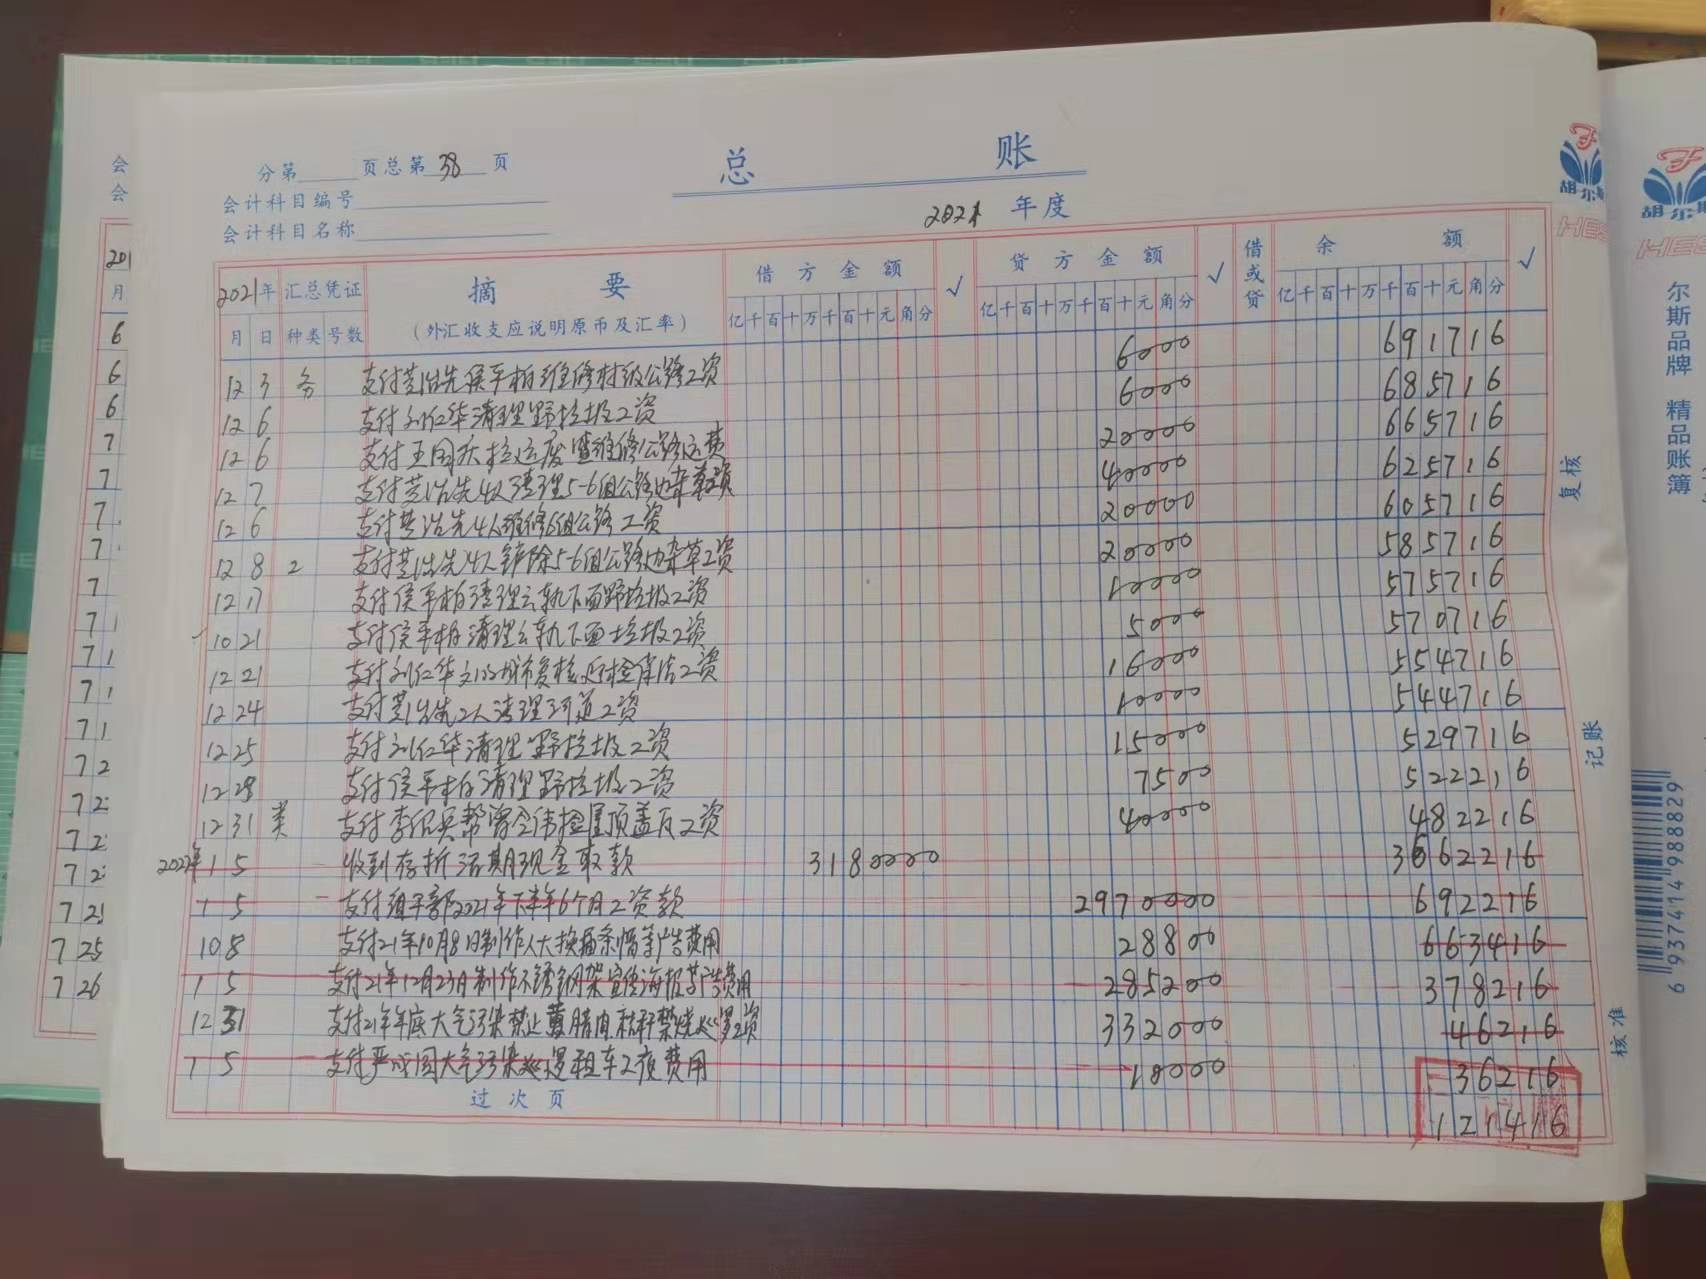 分第 页总第 38 页
会计科目编号
会计科目名称
总 账
2021 年度
2021年 汇总凭证 摘 要 借方金额 √ 贷方金额 √ 借或贷 余 额 √
月 日 种类 号数 (外汇收支应说明原币及汇率) 亿千百十万千百十元角分 亿千百十万千百十元角分 亿千百十万千百十元角分
12 3 支付 先侯平柏维修村级公路工资 6000 691716
12 6 支付刘仁华清理野垃圾工资 6000 685716
12 6 支付王国 拉运废 维修公路运费 20000 665716
12 7 支付 先4人清理5-6组公路边杂草工资 40000 625716
12 6 支付 先4人维修6组公路工资 20000 605716
12 8 2 支付 先4人铲除5-6组公路边杂草工资 20000 585716
12 17 支付侯平柏清理云轨下面野垃圾工资 10000 575716
10 21 支付侯平柏清理云轨下面垃圾工资 5000 570716
12 21 支付刘仁华文明城市复核迎检保洁工资 16000 554716
12 24 支付 先2人清理河道工资 10000 544716
12 25 支付刘仁华清理野垃圾工资 15000 529716
12 28 支付侯平柏清理野垃圾工资 7500 522216
12 31 支付李 兵帮曾令伟检屋顶盖瓦工资 40000 482216
2022年 1 5 收到存折活期现金取款 3180000 3662216
1 5 支付组干部2021年下半年6个月工资款 2970000 692216
10 8 支付21年10月8日制作人大换届条幅等广告费用 28800 663416
1 5 支付21年12月23日制作不锈钢架宣传海报等广告费用 285200 378216
12 31 支付21年年底大气污染禁止薰腊肉,秸秆禁烧巡逻工资 332000 46216
1 5 支付严成国大气污染巡逻租车工夜费用 10000 36216
过次页 121416
复核
记账
核准
胡尔斯
HES
胡尔斯
HES
尔斯品牌 精品账簿
6 937414 988829
会
会
201
月
6
6
6
7
7
7
7
7
7 1
7 1
7 1
7 1
7 2
7 2
7 2
7 2
7 25
7 25
7 26